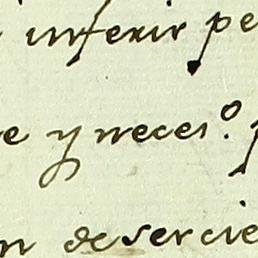 inferir pe
e y neces.º
n deservie